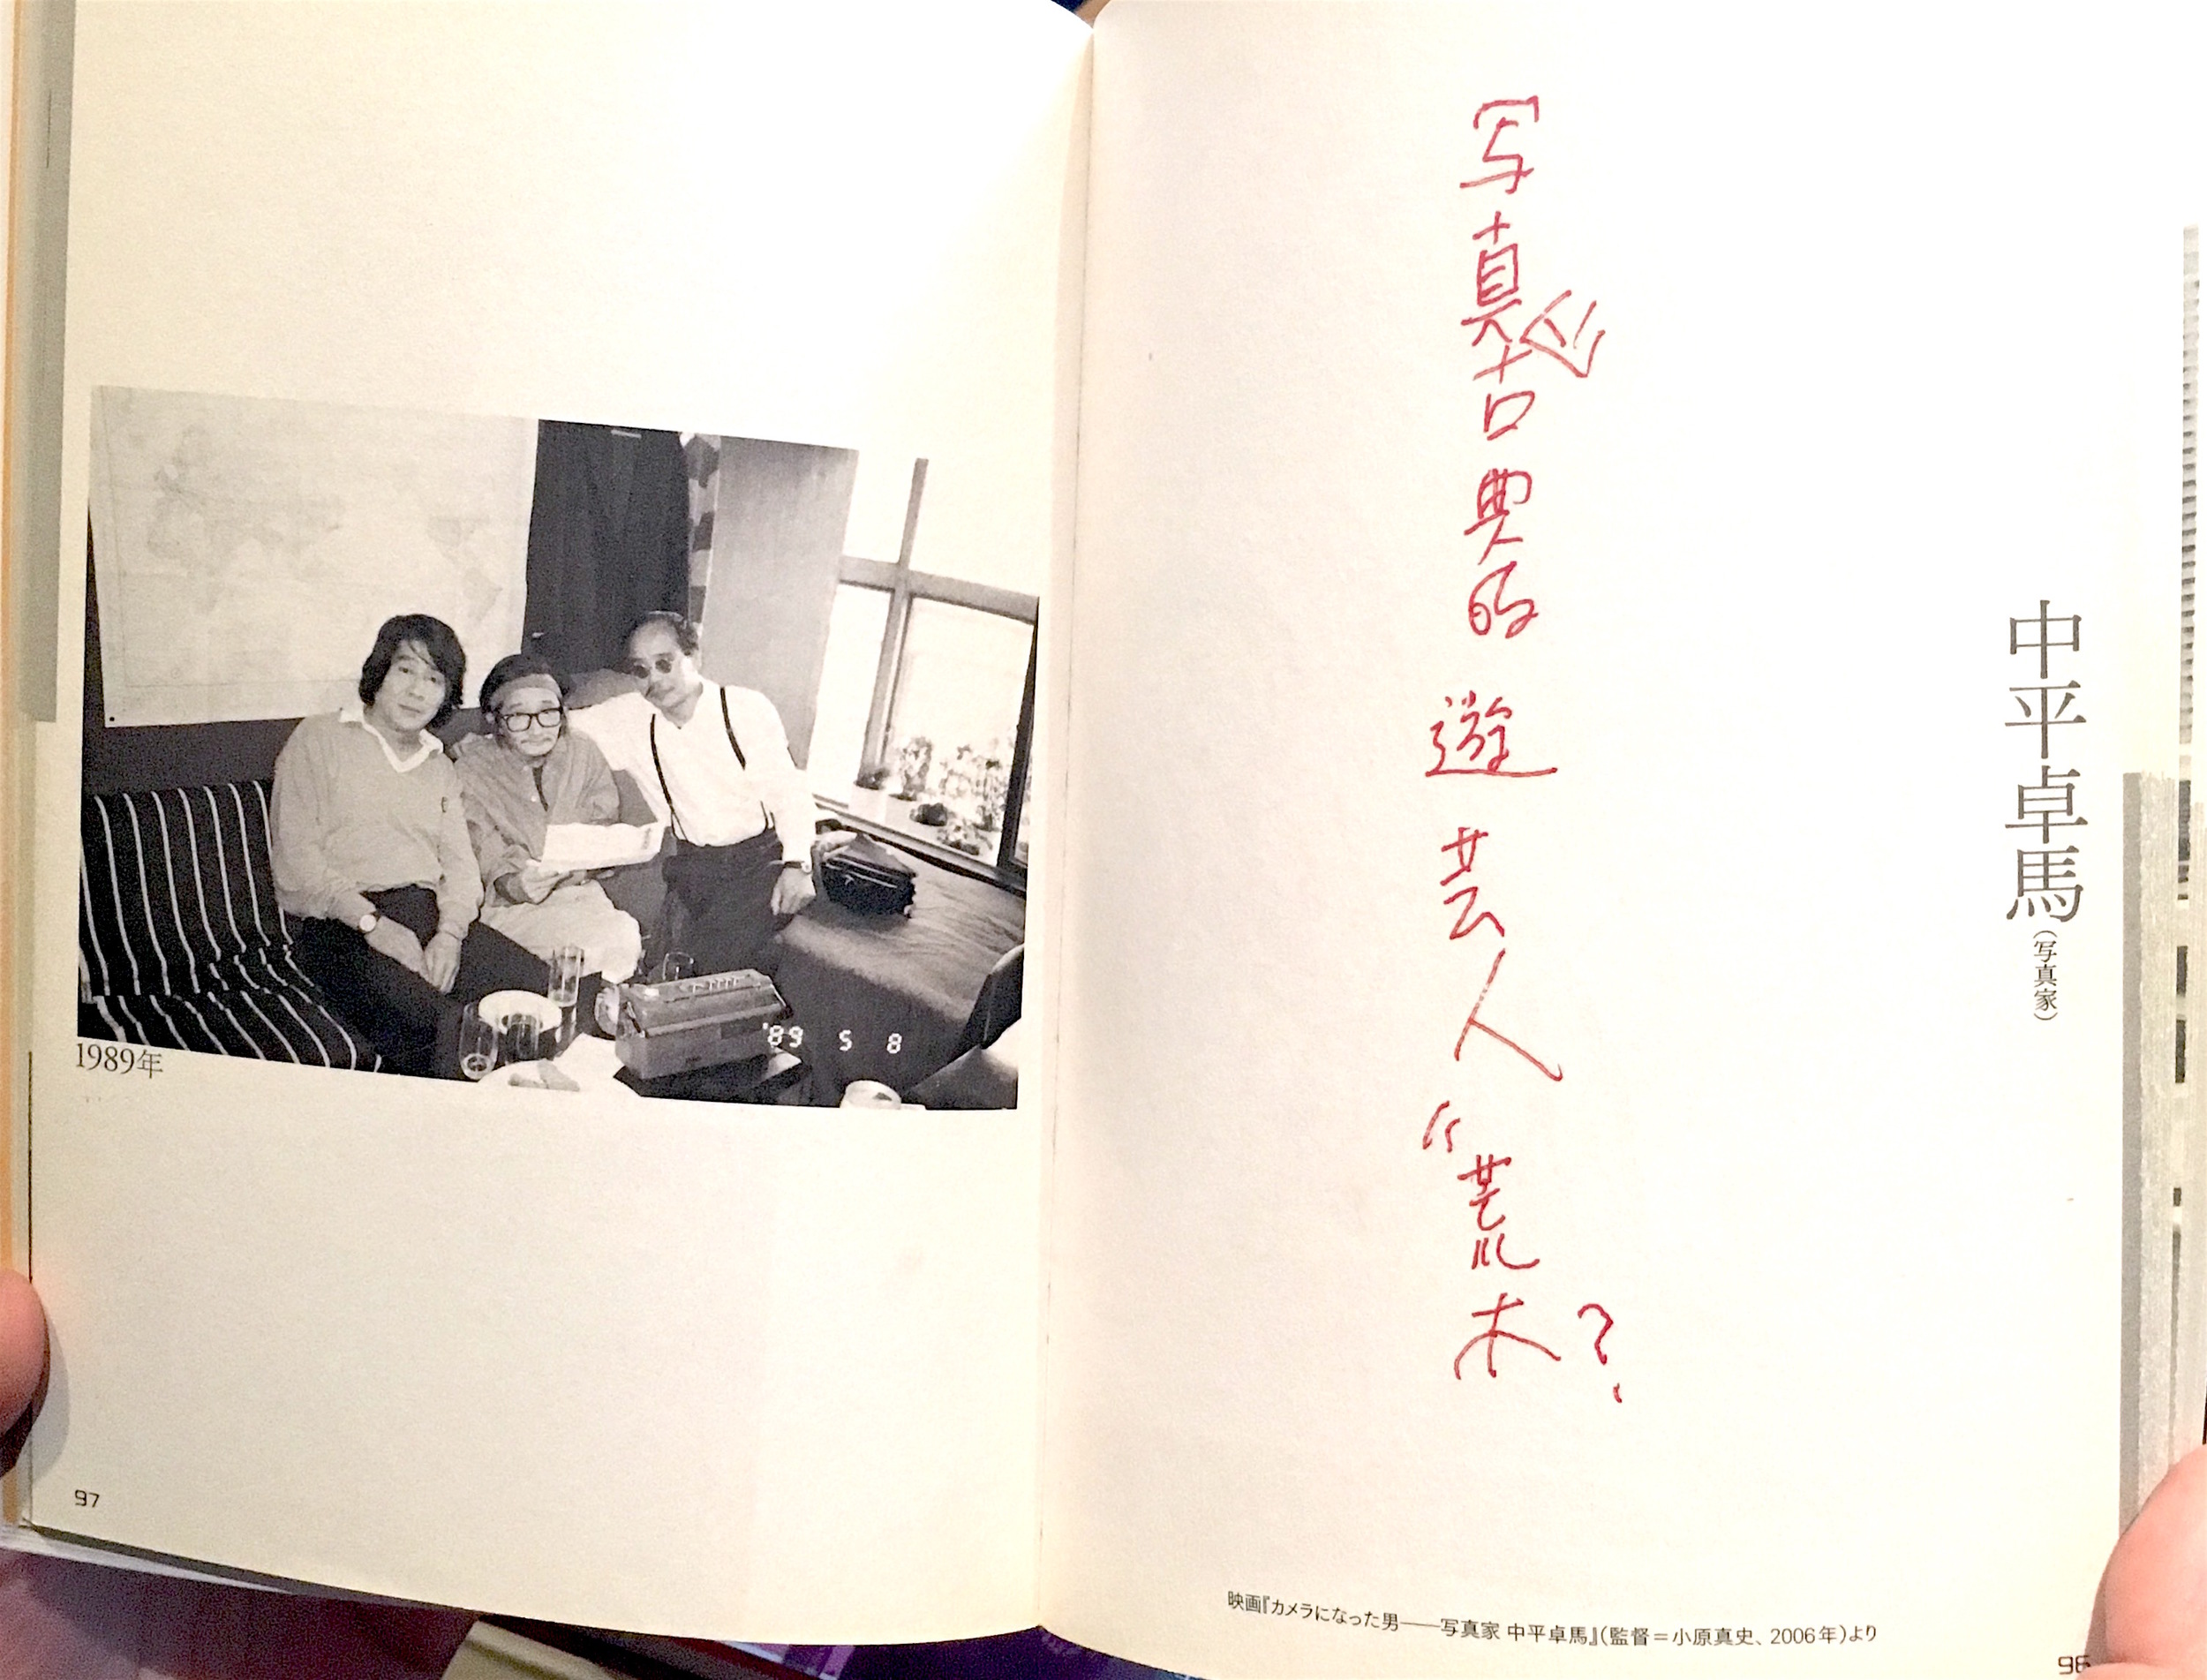 中平卓馬（写真家）
写真古典的遊芸人“荒木?
映画『カメラになった男――写真家 中平卓馬』（監督＝小原真史、2006年）より
96
'89 5 8
1989年
97